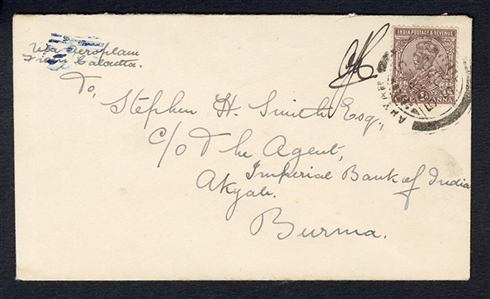 Via Aeroplane
From Calcutta.
INDIA POSTAGE & REVENUE
To,
Stephen H. Smith Esq,
c/o The Agent,
Imperial Bank of India
Akyab.
Burma.